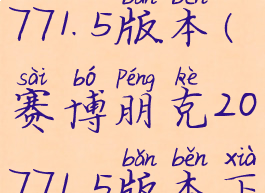 bǎn běn
771.5版本(
sài bó Péng kè
赛博朋克20
bǎn běn xià
771.5版本下